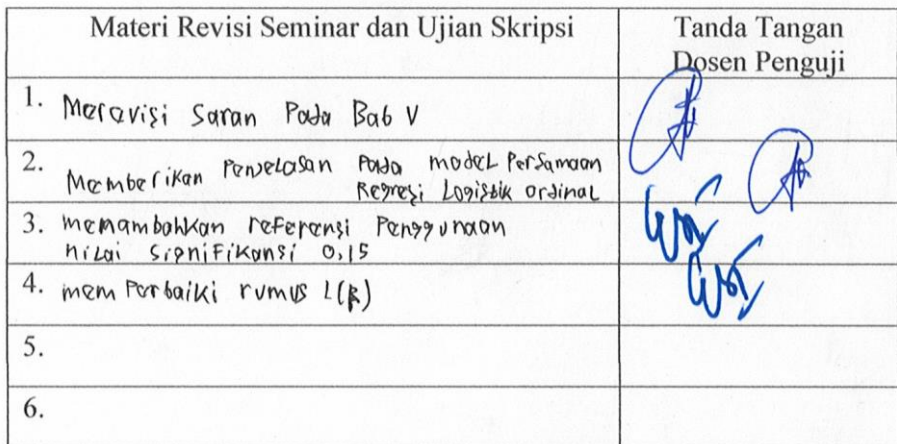 Materi Revisi Seminar dan Ujian Skripsi
Tanda Tangan
Dosen Penguji
1. Merevisi Saran Pada Bab V
2. Memberikan Penjelasan Pada model Persamaan
Regresi Logistik ordinal
3. menambahkan referensi Penggunaan
nilai signifikansi 0,15
4. memperbaiki rumus L(β)
5.
6.